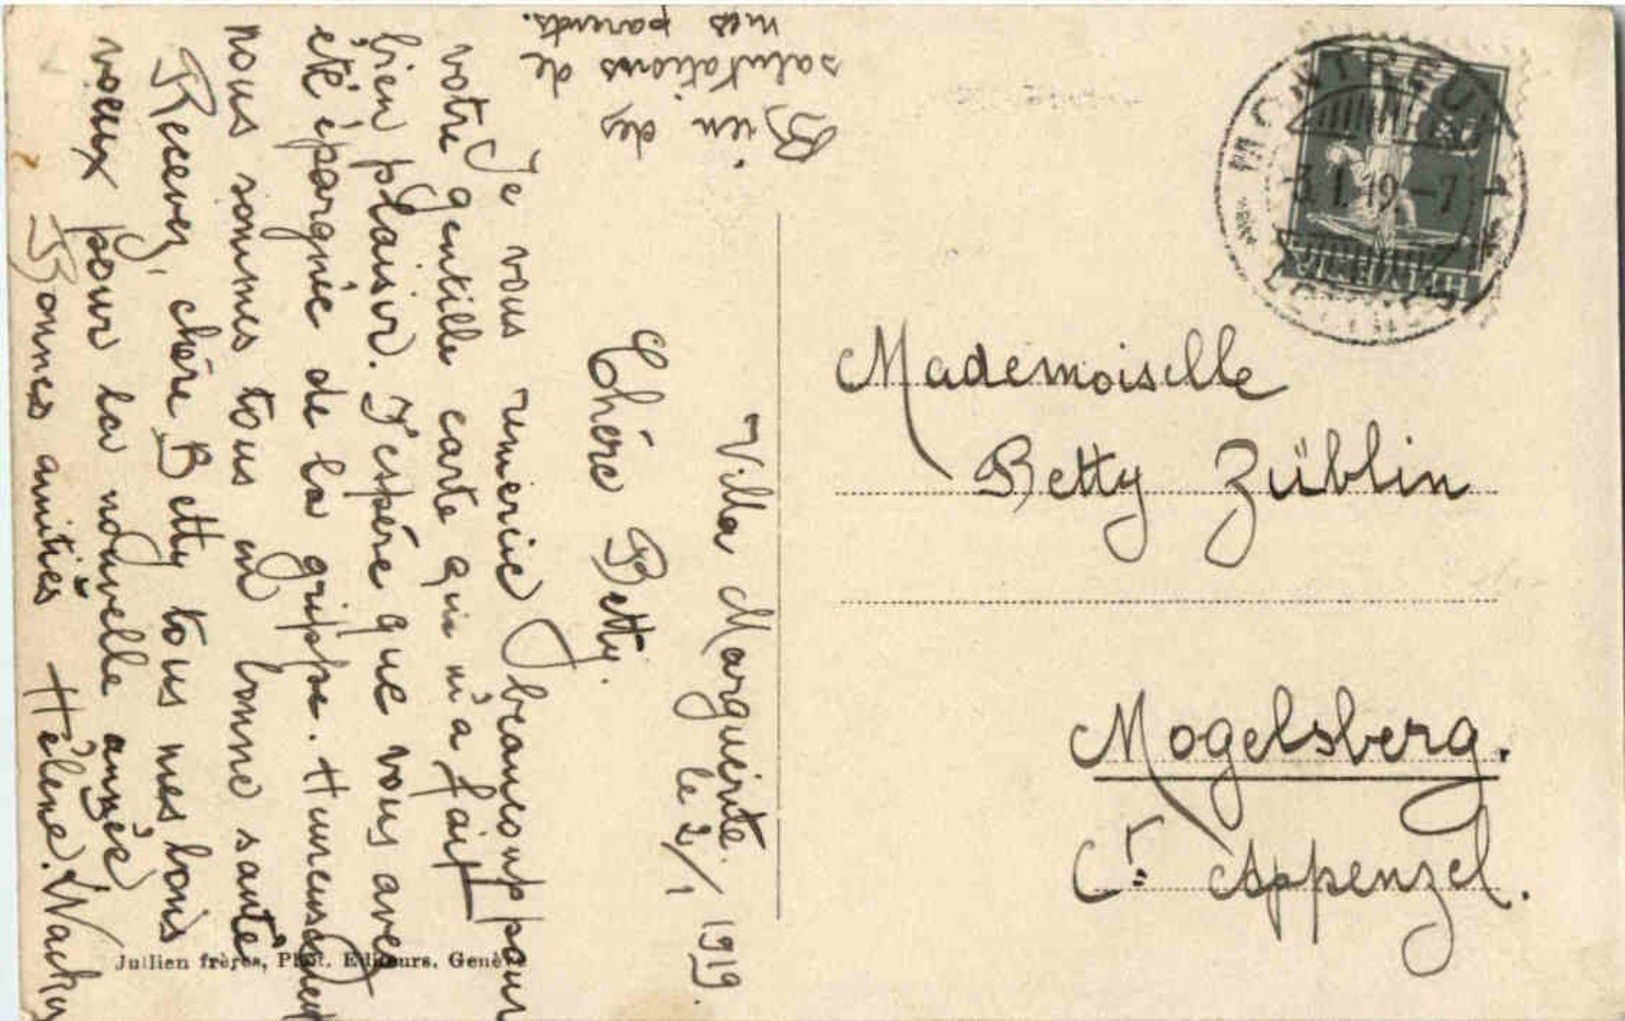 Villa Marguerite.
le 2/1 1919.
Chère Betty.
Je vous remercie beaucoup pour
votre gentille carte qui m'a fait
bien plaisir. J'espère que vous avez
été épargnée de la grippe. Heureusement
nous sommes tous en bonne santé
Recevez, chère Betty tous mes bons
voeux pour la nouvelle année
Bonnes amitiés Hélène.
Bien des
salutations de
mes parents.
Mademoiselle
Betty Züblin
Mogelsberg.
Ct: Appenzel.
MONTREUX
3.1.19-7
HELVETIA
Jullien frères, Phot. Editeurs. Genève